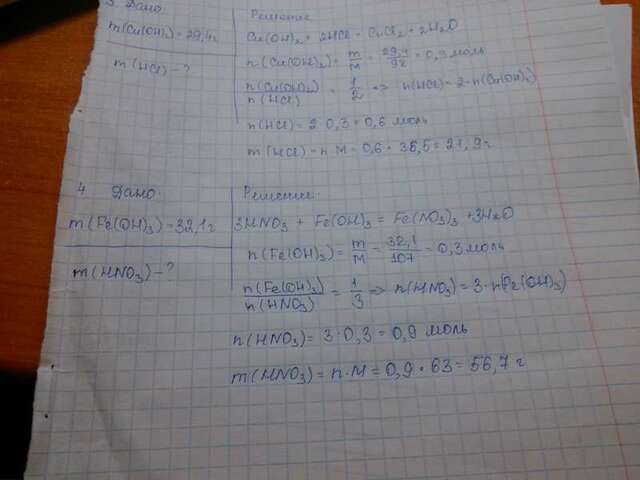 3 Дано:
Решение
m(Cu(OH)₂) = 29,4г
Cu(OH)₂ + 2HCl = CuCl₂ + 2H₂O
m(HCl) - ?
n(Cu(OH)₂) = m/M = 29,4/98 = 0,3 моль
n(Cu(OH)₂)/n(HCl) = 1/2 => n(HCl) = 2·n(Cu(OH)₂)
n(HCl) = 2·0,3 = 0,6 моль
m(HCl) = n·M = 0,6·36,5 = 21,9 г
4 Дано:
Решение:
m(Fe(OH)₃) = 32,1г
3HNO₃ + Fe(OH)₃ = Fe(NO₃)₃ + 3H₂O
m(HNO₃) - ?
n(Fe(OH)₃) = m/M = 32,1/107 = 0,3 моль
n(Fe(OH)₃)/n(HNO₃) = 1/3 => n(HNO₃) = 3·n(Fe(OH)₃)
n(HNO₃) = 3·0,3 = 0,9 моль
m(HNO₃) = n·M = 0,9·63 = 56,7 г